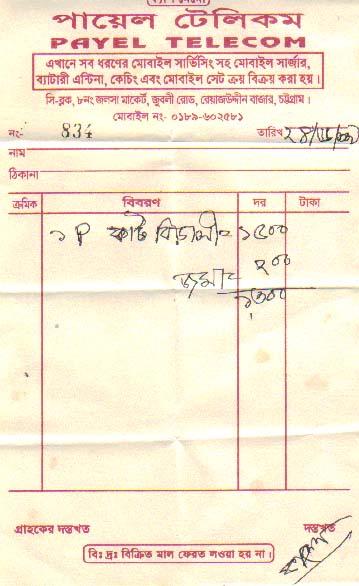 পায়েল টেলিকম
PAYEL TELECOM
এখানে সব ধরণের মোবাইল সার্ভিসিং সহ মোবাইল সার্জার,
ব্যাটারী এন্টিনা, কেচিং এবং মোবাইল সেট ক্রয় বিক্রয় করা হয়।
সি-ব্লক, ৮নং জলসা মার্কেট, জুবলী রোড, রেয়াজউদ্দীন বাজার, চট্টগ্রাম।
মোবাইল নং- ০১৮৯-৬০২৫৮১
নং- 834 তারিখ
নাম
ঠিকানা
ক্রমিক বিবরণ দর টাকা
১ P কার্ট = ১৫০০
জমা = ২০০
১৩০০
গ্রাহকের দস্তখত দস্তখত
বিঃ দ্রঃ বিক্রিত মাল ফেরত লওয়া হয় না।